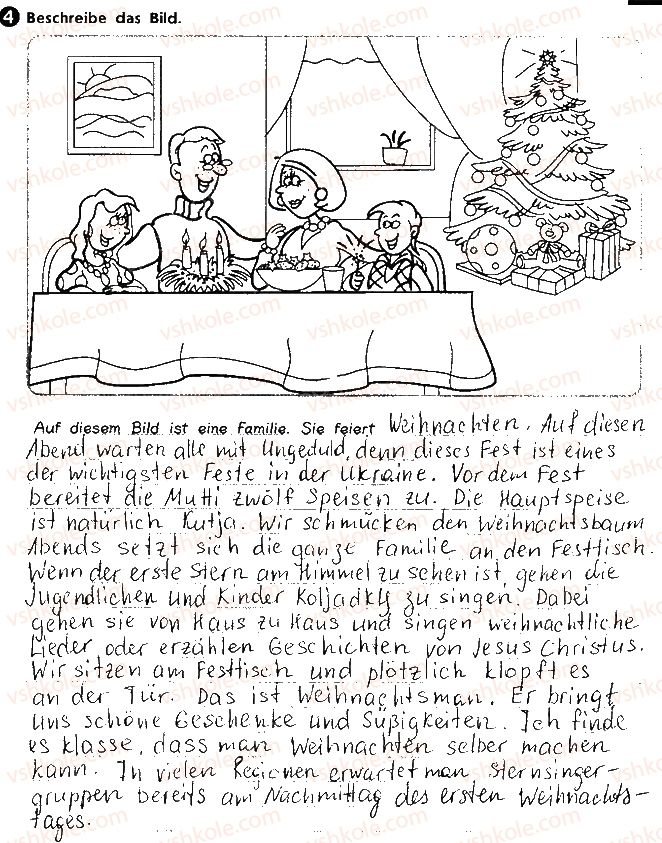 4 Beschreibe das Bild.
Auf diesem Bild ist eine Familie. Sie feiert Weihnachten. Auf diesen
Abend warten alle mit Ungeduld, denn dieses Fest ist eines
der wichtigsten Feste in der Ukraine. Vor dem Fest
bereitet die Mutti zwölf Speisen zu. Die Hauptspeise
ist natürlich Kutja. Wir schmücken den Weihnachtsbaum
Abends setzt sich die ganze Familie an den Festtisch.
Wenn der erste Stern am Himmel zu sehen ist, gehen die
Jugendlichen und Kinder Koljadky zu singen. Dabei
gehen sie von Haus zu Haus und singen weihnachtliche
Lieder, oder erzählen Geschichten von Jesus Christus.
Wir sitzen am Festtisch und plötzlich klopft es
an der Tür. Das ist Weihnachtsman. Er bringt
uns schöne Geschenke und Süßigkeiten. Ich finde
es klasse, dass man Weihnachten selber machen
kann. In vielen Regionen erwartet man, Sternsinger-
gruppen bereits am Nachmittag des ersten Weihnachts-
tages.
vshkole.com